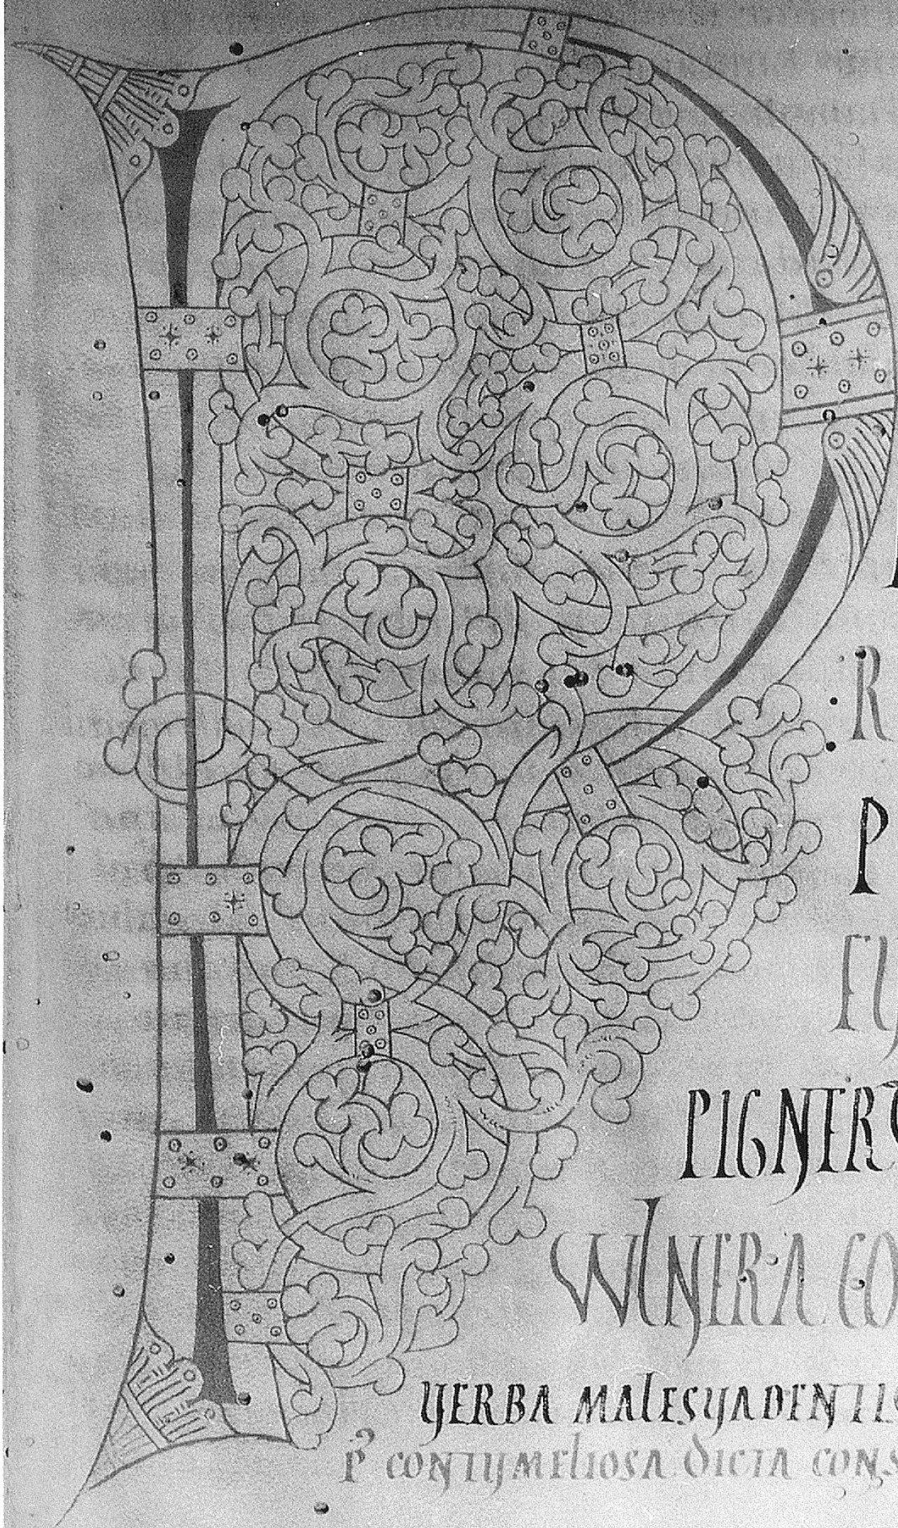 P
R
P
FU
PIGNERU
WLNERA CO
VERBA MALESUADENTIS
P̃ CONTUMELIOSA DICTA CONS